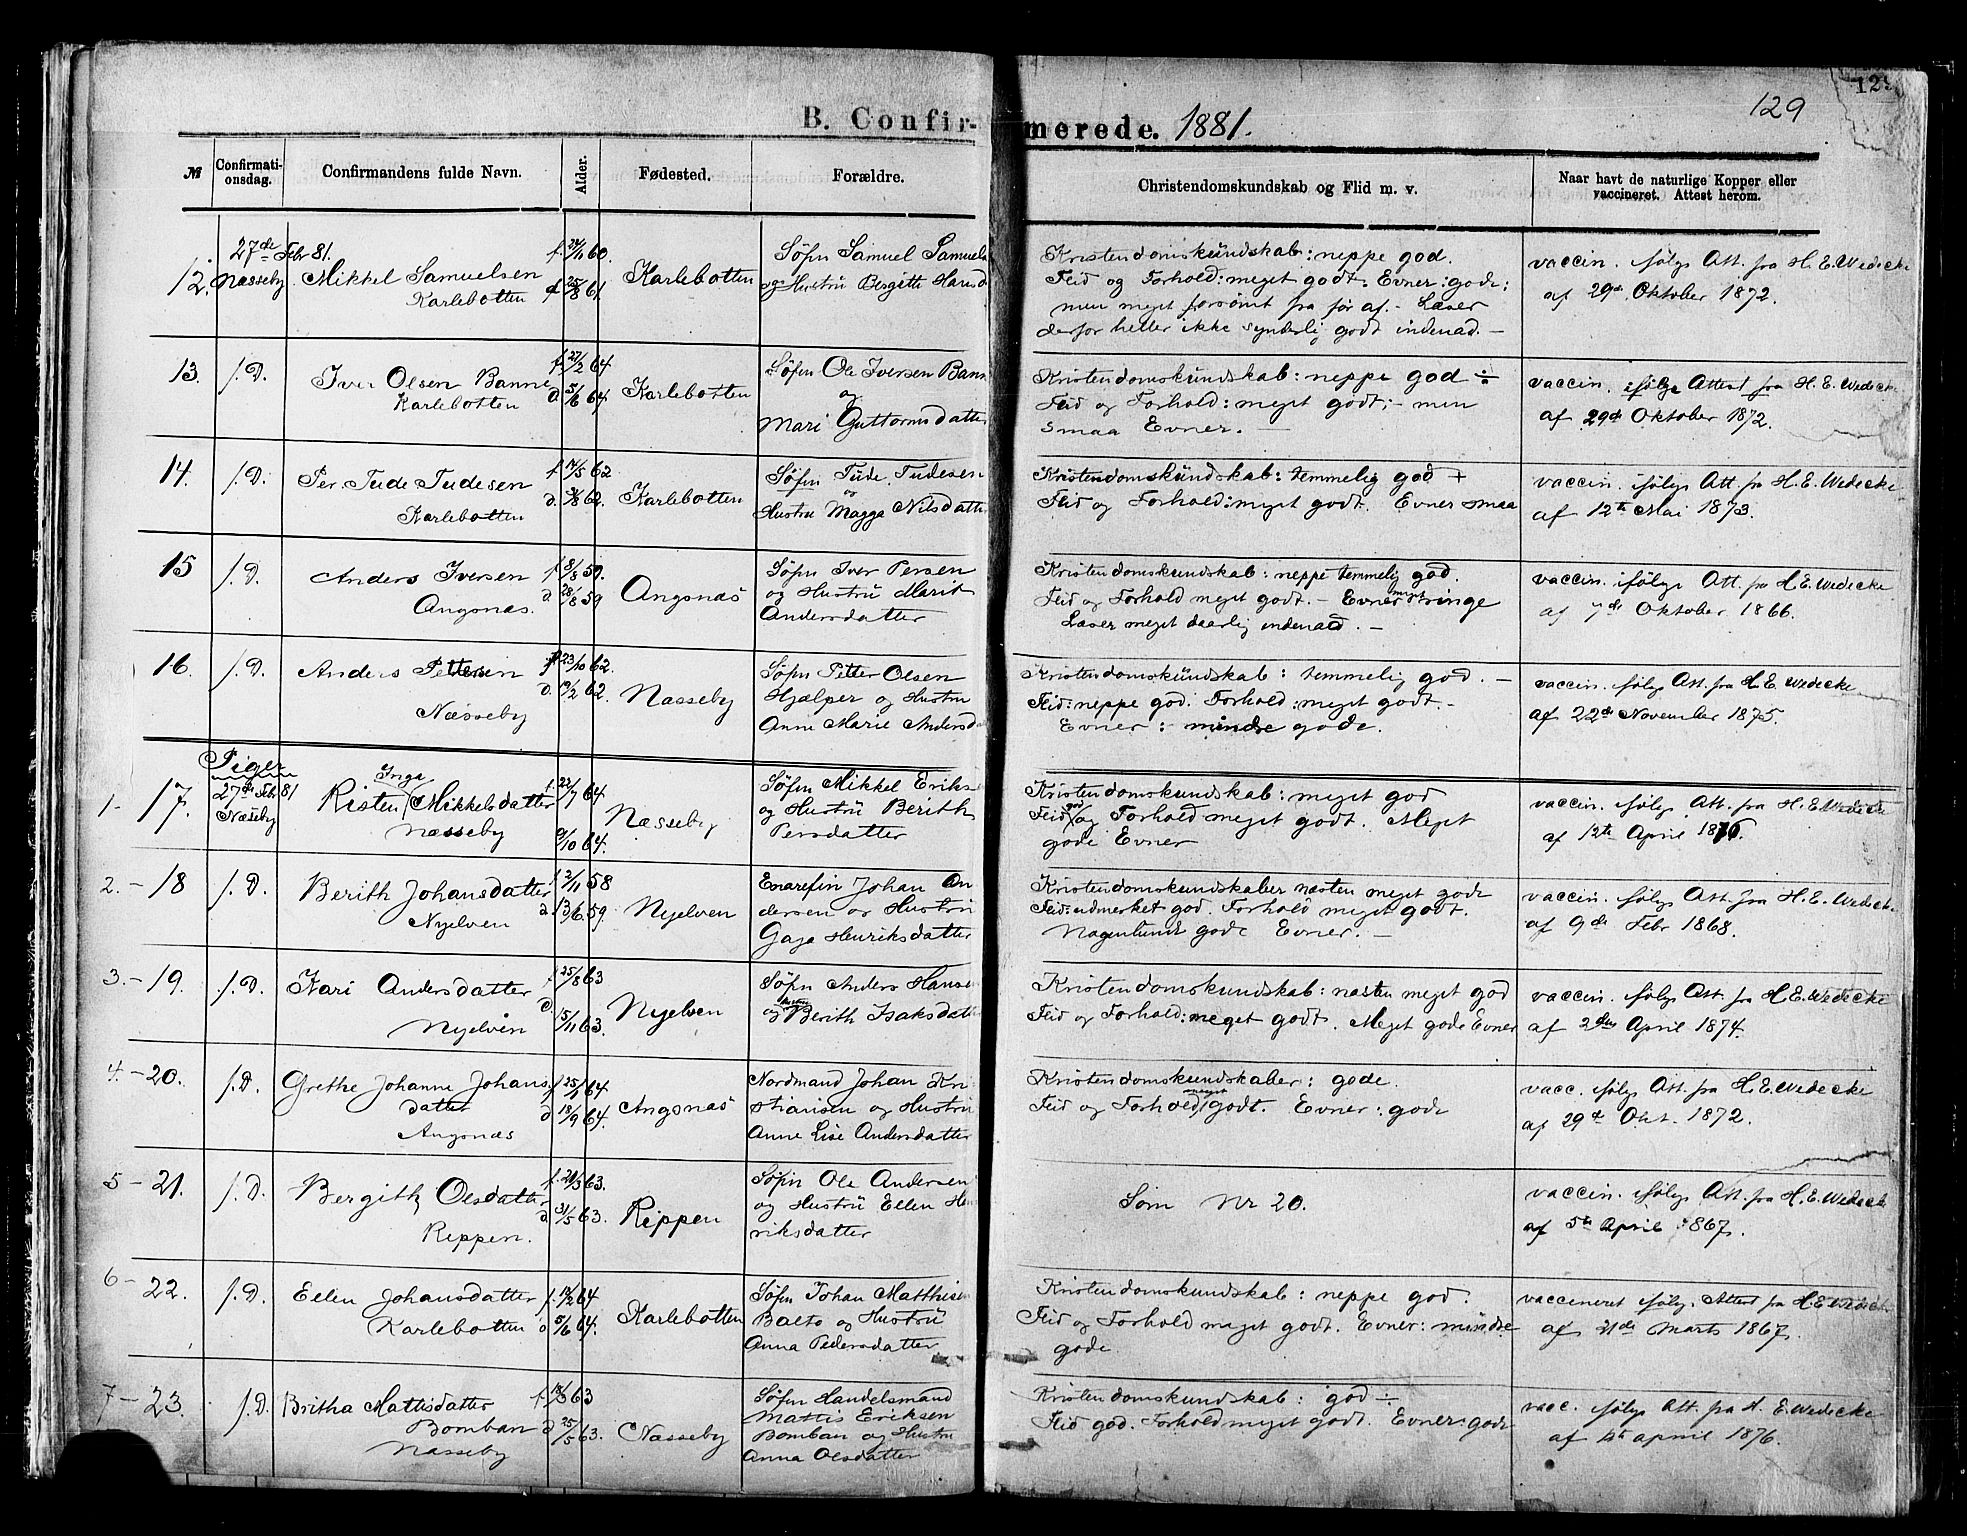 129
129
B. Confirmerede. 1881.
№ Confirmationsdag. Confirmandens fulde Navn. Alder. Fødested. Forældre. Christendomskundskab og Flid m. v. Naar havt de naturlige Kopper eller vaccineret. Attest herom.
12. 27de Febr 81. Næsseby
Mikkel Samuelsen
Karlebotten
Karlebotten
Søfin Samuel Samuels
og Hustru Birgitte Hansd
Kristendomskundskab: neppe god.
Flid og Forhold: meget godt. Evner: gode;
men meget forsømt fra før af. – Læser
derfor heller ikke synderlig godt indenad. –
vaccin. ifølge Att. fra H. E. Wedecke
af 29de Oktober 1872.
13. f. D.
Iver Olsen Banne
Karlebotten
f. 27/2 64
d. 5/6 64
Karlebotten
Søfin Ole Iversen Bann
og
Mari Guttormsdatter
Kristendomskundskab: neppe god ÷
Flid og Forhold: meget godt; – men
smaa Evner. –
vaccin. ifølge Attest fra H. E. Wedecke
af 29de Oktober 1872.
14. f. D.
Per Tude Tudesen
Karlebotten
Karlebotten
Søfin Tude Tudesen
og
Hustru Magga Nilsdatte
Kristendomskundskab: temmelig god +
Flid og Forhold: meget godt. Evner smaa
vaccin. ifølge Att. fra H. E. Wedecke
af 12te Mai 1873.
15 f. D.
Anders Iversen
Angsnæs.
f. 8/8 59.
d. 28/8 59
Angsnæs
Søfin Iver Persen
og Hustru Marit
Andersdatter
Kristendomskundskab: neppe temmelig god.
Flid og Forhold meget godt. – Evner meget ringe
Læser meget daarlig indenad. –
vaccin. ifølge Att. fra H. E. Wedecke
af 7de Oktober 1866.
16. f. D.
Anders Pettersen
Næsseby
f. 23/10 62.
Næsseby
Søfin Petter Olsen
Hjælper og Hustru
Anne Marie Andersda
Kristendomskundskab: temmelig god. –
Flid: neppe god. Forhold: meget godt. –
Evner: mindre gode.
vaccin. ifølge Att. fra H. E. Wedecke
af 22de November 1875.
Piger
1- 17. 27de Febr 81 Næsseby
Risten Inga Mikkelsdatter
Næsseby
f. 23/7 64
9/10 64.
Næsseby
Søfin Mikkel Eriks
og Hustru Berith
Persdatter
Kristendomskundskab: meget god
Flid god og Forhold meget godt. Meget
gode Evner
vaccin. ifølge Att. fra H. E. Wedecke
af 12te April 1876.
2. – 18 f. D.
Berith Johansdatter
Nyelven
f. 2/11 58
d. 13/6 59
Nyelven
Enarefin Johan An
dersen og Hustru
Gaja Henriksdatter
Kristendomskundskaber næsten meget gode
Flid: udmerket god. Forhold meget godt.
Nogenlunde gode Evner. –
vaccin. ifølge Att. fra H. E. Wedecke
af 9de Febr 1868.
3. – 19. f. D.
Kari Andersdatter
Nyelven
f. 25/8 63
d. 15/11 63.
Nyelven
Søfin Anders Hanse
og Hustru Berith Isaksdatt
Kristendomskundskab: næsten meget god
Flid og Forhold: meget godt. Meget gode Evner
vaccin. ifølge Att. fra H. E. Wedecke
af 2den April 1874.
4. – 20. f. D.
Grethe Johanne Johans
datter
Angsnæs
f. 25/1 64
d 18/9 64.
Angsnæs
Nordmand Johan Kri
stiansen og Hustru
Anne Lise Andersdatter
Kristendomskundskaber: gode.
Flid og Forhold meget godt. Evner: gode
vacc. ifølge Att. fra H. E. Wedecke
af 29de Okt. 1872.
5 – 21. f. D.
Bergith Olsdatter
Reppen.
d 31/5 63.
Reppen
Søfin Ole Andersen
og Hustru Ellen Hen
riksdatter
Som Nr 20.
vaccin. ifølge Att. fra H. E. Wedecke
af 5te April 1867.
6 – 22. f. D.
Ellen Johansdatter
Karlebotten
f. 18/2 64.
d 5/6 64.
Karlebotten
Søfin Johan Matthisen
Balto og Hustru
Anna Pedersdatter
Kristendomskundskab: neppe god.
Flid og Forhold meget godt. Evner: mindre
gode
vaccineret ifølge Attest fra H. E. Wedecke
af 21de Marts 1867.
7 – 23. f. D.
Britha Mattisdatter
Bomban
Næsseby
f 18/3 63
d 25/5 63.
Næsseby
Søfin Handelsmand
Mattis Eriksen
Bomban og Hustru
Anna Olsdatter
Kristendomskundskab: god ÷
Flid god. Forhold meget godt. Evner: gode
vacc. ifølge Att. fra H. E. Wedecke
af April 1876.